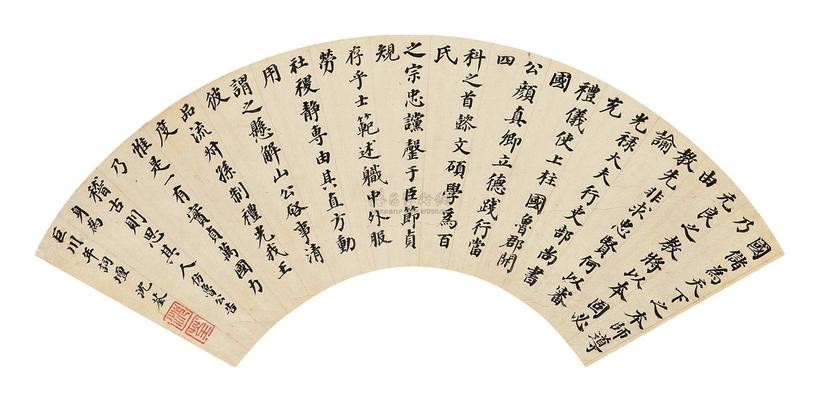 國儲為天下之本師導
乃
元良之教將以本固必
由
教先非求忠賢何以審
諭
光祿大夫行吏部尚書
充
禮儀使上柱國魯郡開
國
公顏真卿立德踐行當
四
科之首懿文碩學為百
氏
之宗忠讜罄于臣節貞
規
存乎士範述職中外服
勞
社稷靜專由其直方動
用
謂之懸解山公啓事清
彼
品流叔孫制禮光我王
度
惟是一有實貞萬國力
乃
稽古則思其人仿魯公告
身為
巨川年詞壇 沈